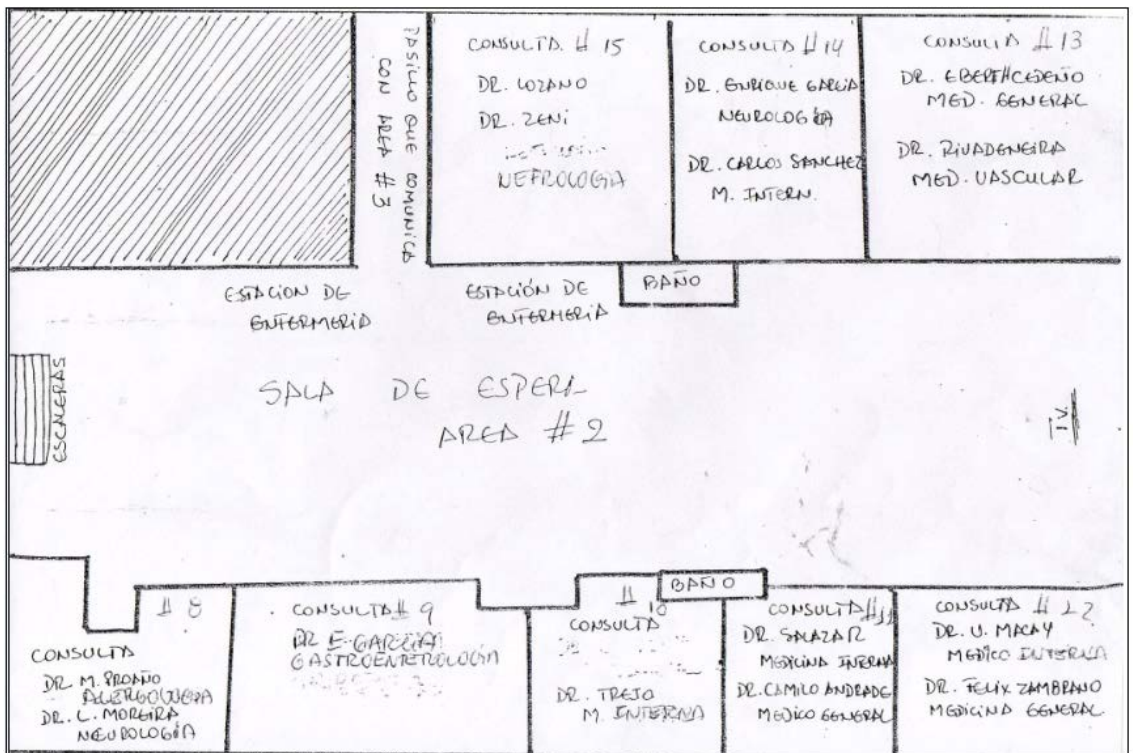 PASILLO QUE COMUNICA
CON AREA #3
CONSULTA # 15
DR. LOZANO
DR. ZENI
NEFROLOGIA
CONSULTA # 14
DR. ENRIQUE GARCIA
NEUROLOGIA
DR. CARLOS SANCHEZ
M. INTERN.
CONSULTA # 13
MED. GENERAL
DR. RIVADENEIRA
MED. VASCULAR
ESTACION DE
ENFERMERIA
ESTACIÓN DE
ENFERMERIA
BAÑO
ESCALERAS
SALA DE ESPERA
AREA #2
T.V.
# 8
CONSULTA
DR. M. PROAÑO
DR. L. MOREIRA
NEUROLOGÍA
CONSULTA # 9
DR E. GARCIA
GASTROENTEROLOGIA
# 10
CONSULTA
DR. TREJO
M. INTERNA
BAÑO
CONSULTA #11
DR. SALAZAR
MEDICINA INTERNA
DR. CAMILO ANDRADE
MEDICO GENERAL
CONSULTA # 12
DR. U. MACAY
MEDICO INTERNA
DR. FELIX ZAMBRANO
MEDICINA GENERAL